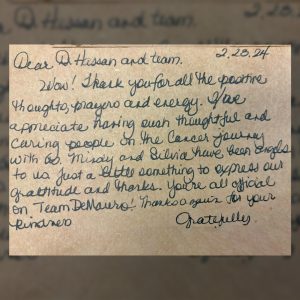 2.28.24
Dear D. Hussan and team.
Wow! Thank you for all the positive
thoughts, prayers and energy. We
appreciate having such thoughtful and
caring people on the cancer journey
with us. Mindy and Silvia have been angels
to us. Just a little something to express our
gratitude and thanks. You're all official
on Team DeMauro! Thanks again for your
kindness
Gratefully,